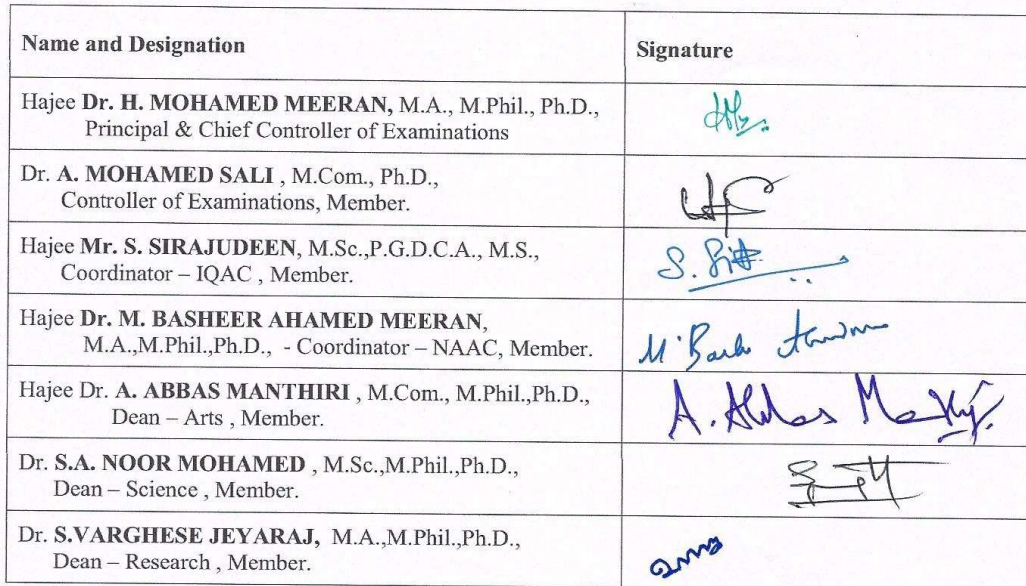 Name and Designation
Signature
Hajee Dr. H. MOHAMED MEERAN, M.A., M.Phil., Ph.D.,
Principal & Chief Controller of Examinations
Dr. A. MOHAMED SALI , M.Com., Ph.D.,
Controller of Examinations, Member.
Hajee Mr. S. SIRAJUDEEN, M.Sc.,P.G.D.C.A., M.S.,
Coordinator – IQAC , Member.
S.
Hajee Dr. M. BASHEER AHAMED MEERAN,
M.A.,M.Phil.,Ph.D., - Coordinator – NAAC, Member.
Hajee Dr. A. ABBAS MANTHIRI , M.Com., M.Phil.,Ph.D.,
Dean – Arts , Member.
A. Abbas
Dr. S.A. NOOR MOHAMED , M.Sc.,M.Phil.,Ph.D.,
Dean – Science , Member.
Dr. S.VARGHESE JEYARAJ, M.A.,M.Phil.,Ph.D.,
Dean – Research , Member.